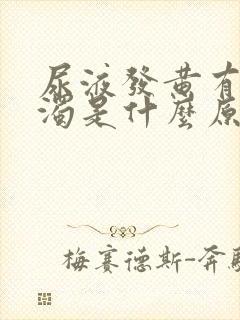 尿液發黃有
濁是什麼原
梅賽德斯-奔馳